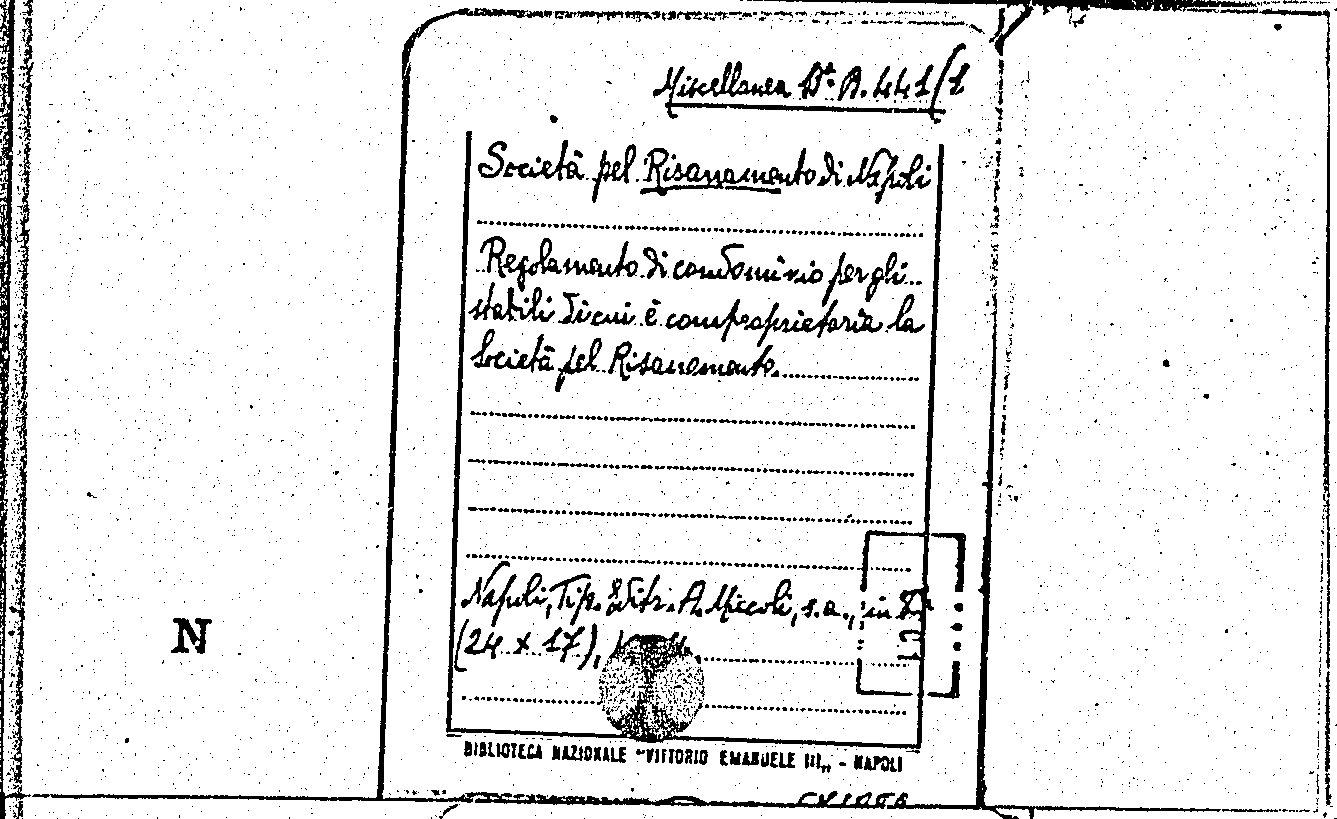 Miscellanea Bᵃ. B. 441/1
Società pel Risanamento di Napoli
Regolamento di condominio per gli
stabili di cui è comproprietaria la
Società pel Risanamento.
Napoli, Tip. Editr. A. Miccoli, s.a., in 8°
(24 x 17),
N
BIBLIOTECA NAZIONALE "VITTORIO EMANUELE III„ - NAPOLI